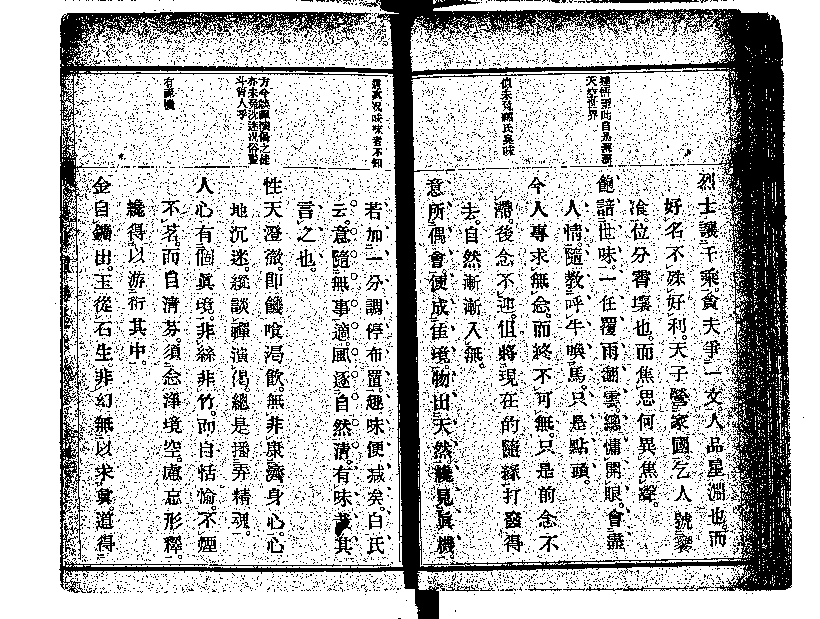 天空世界
但未免釋氏臭味
烈士讓千乘。貪夫爭一文。人品星淵也。而
好名不殊好利。天子營家國。乞人號饔
飧。位分霄壤也。而焦思何異焦聲。
飽諳世味。一任覆雨翻雲。總慵開眼。會盡
人情。隨教呼牛喚馬。只是點頭。
今人專求無念。而終不可無。只是前念不
滯。後念不迎。但將現在的隨緣打發得
去。自然漸漸入無。
意所偶會。便成佳境。物出天然。纔見眞機。
味者不知
方今談禪演偈之徒
亦未免沈迷況俗輩
斗筲人乎
有禪機
若加一分調停布置。趣味便減矣。白氏
云。意隨無事適。風逐自然清。有味哉其
言之也。
性天澄徹。即饑喰渴飲。無非康濟身心。心
地沉迷。縱談禪演偈。總是播弄精魂。
人心有個眞境。非絲非竹。而自恬愉。不煙
不茗。而自清芬。須念淨境空。慮忘形釋。
纔得以游衍其中。
金自鑛出。玉從石生。非幻無以求眞。道得